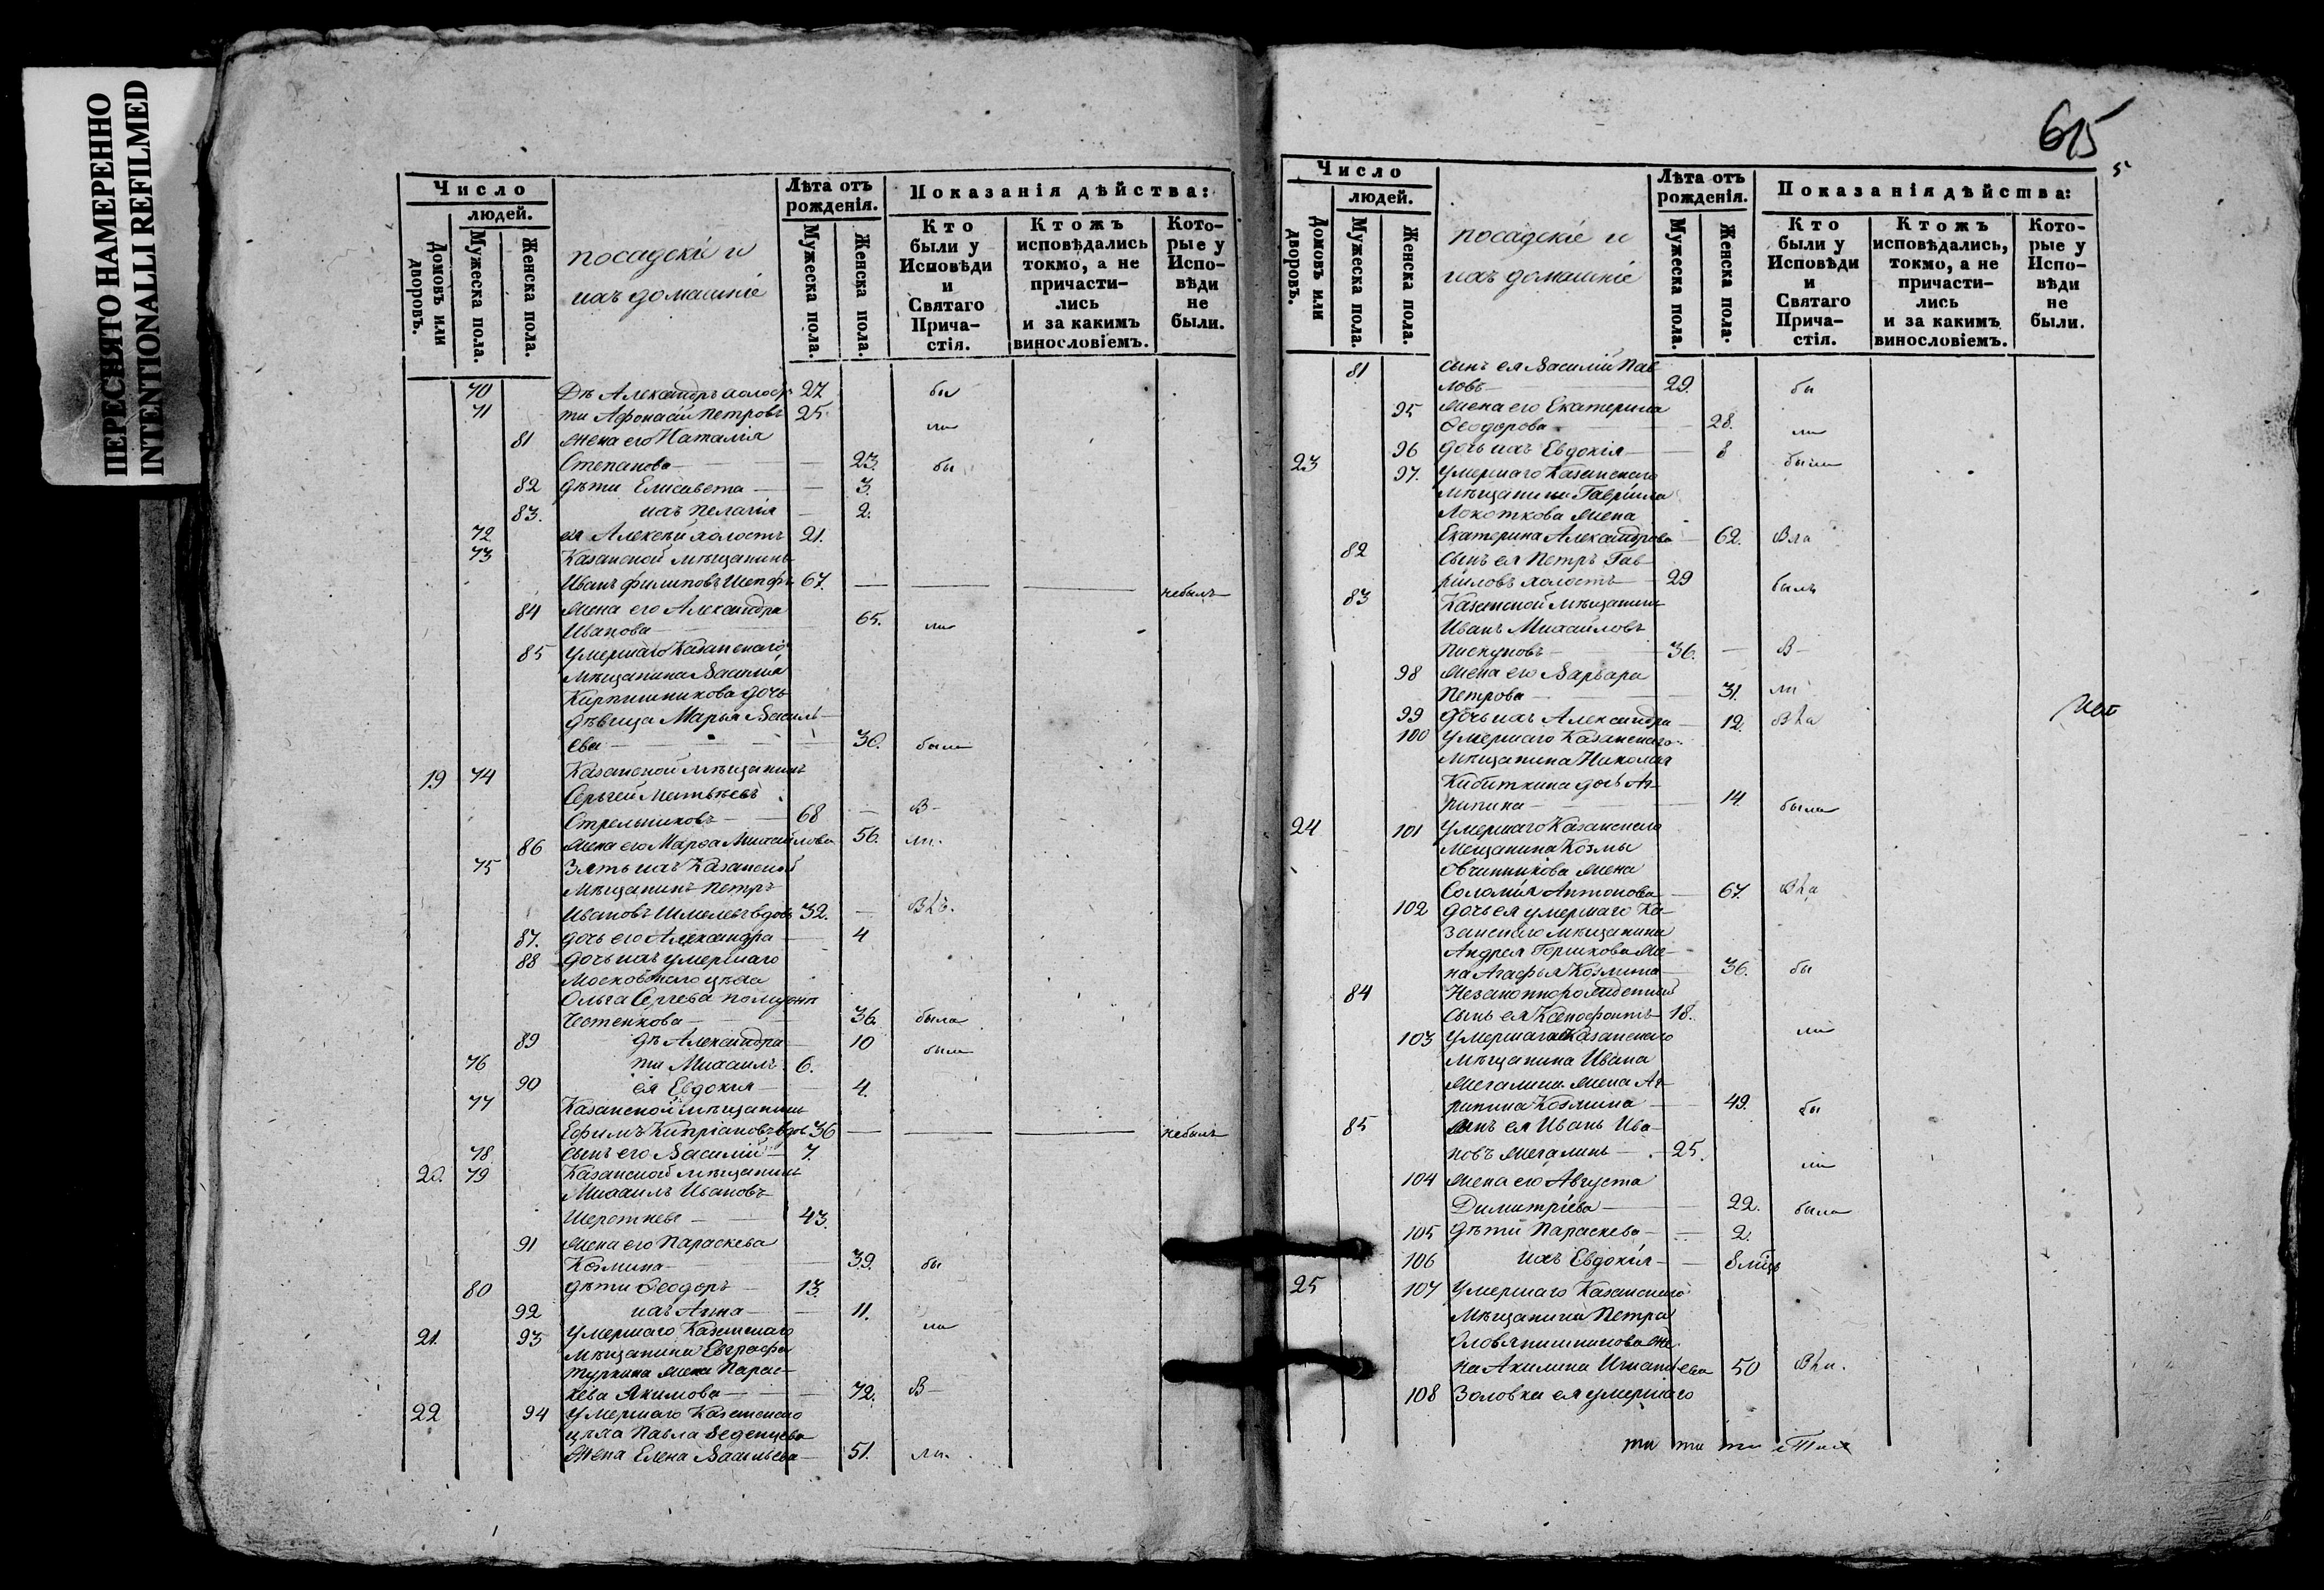 ПЕРЕСНЯТО НАМЕРЕННО
INTENTIONALLI REFILMED
Число
людей.
Домовъ или дворовъ.
Мужеска пола.
Женска пола.
посадскіи и
ихъ домашніе
Лѣта отъ рожденія.
Мужеска пола.
Женска пола.
Показанія дѣйства:
Кто были у Исповѣди и Святаго Прича-стія.
Ктожъ исповѣдались токмо, а не причасти-лись и за какимъ винословіемъ.
Кото-рые у Испо-вѣди не были.
70 Дѣ Александръ холостъ 27 бы
71 ти Афонасій Петровъ 25. ли
81 жена его Наталія
Степанова 23. бы
82 дѣти Елисавета 3.
83. ихъ Пелагія 2.
72 ея Алексѣй холостъ 21.
73 Казанской мѣщанинъ
Иванъ Филиповъ 67. небылъ
84 жена его Александра
Иванова 65. ли
85 умершаго Казанскаго
мѣщанина Василія
Кирпишникова дочь
дѣвица Марья Василь-
ева 30. была
19 74 Казанской мѣщанинъ
Сергей Матвѣевъ
Стрельниковъ 68 В
86 жена его Марѳа Михайлова 56. ли.
75 Зять ихъ Казанской
мѣщанинъ Петръ
Ивановъ Шмелевъ вдовъ 32.
87. дочь его Александра 4
88 дочь ихъ умершаго
Московскаго цѣха
Ольга Сергева
Чстенкова 36. была
89 дѣ Александра 10 были
76 ти Михаилъ 6.
90 ея Евдокія 4.
77 Казанской мѣщанинъ
Ефимъ Кипріановъ вдов 36 небылъ
78 сынъ его Василій 7.
20. 79 Казанской мѣщанинъ
Михаилъ Ивановъ
43.
91 жена его Параскева
Козмина 39. бы
80 дѣти Ѳеодоръ 13.
92 ихъ Анна 11.
ли
21. 93 умершаго Казанскаго
мѣщанина Евграфа
Туркина жена Парас-
кева Якимова 72. В
22 94 умершаго Казанскаго
цѣха Павла Веденцева
жена Елена Васильева 51. ли.
615
5
Число
людей.
Домовъ или дворовъ.
Мужеска пола.
Женска пола.
посадскіе и
ихъ домашніе
Лѣта отъ рожденія.
Мужеска пола.
Женска пола.
Показанія дѣйства:
Кто были у Исповѣди и Святаго Прича-стія.
Ктожъ исповѣдались, токмо, а не причасти-лись и за какимъ винословіемъ.
Кото-рые у Испо-вѣди не были.
81 сынъ ея Василій Пав-
ловъ 29. бы
95 жена его Екатерина
Ѳеодорова 28. ли
96 дочь ихъ Евдокія 8
23 97. умершаго Казанскаго были
мѣщанина Гавріила
Локоткова жена
Екатерина Александрова 62.
82 сынъ ея Петръ Гав-
ріиловъ холостъ 29 былъ
83 Казанской мѣщанинъ
Иванъ Михайловъ
Пискуновъ 36. В
98 жена его Варвара
Петрова 31. ли
99 дочь ихъ Александра 12.
100 умершаго Казанскаго
мѣщанина Николая
Кибиткина дочь Аг-
рипина 14. была
24 101 умершаго Казанскаго
мещанина Козмы
Овчинникова жена
Соломія Антонова 67.
102 дочь ея умершаго Ка-
занскаго мѣщанина
Андрея Горшкова же-
на Агафья Козмина 36. бы
84 Незаконнорожденный
сынъ ея Ксенофонтъ 18.
103 умершаго Казанскаго ли
мѣщанина Ивана
Мегалина жена Аг-
рипина Козмина 49. бы
85 сынъ ея Иванъ Ива-
новъ Мегалинъ 25.
ли
104 жена его Августа
Димитріева 22. была
105 дѣти Параскева 2.
106 ихъ Евдокія 8 мцъ
25 107 умершаго Казанскаго
мѣщанина Петра
Оловянишникова же
на Акилина Игнатьева 50
108 Золовка ея умершаго
ти ти ти